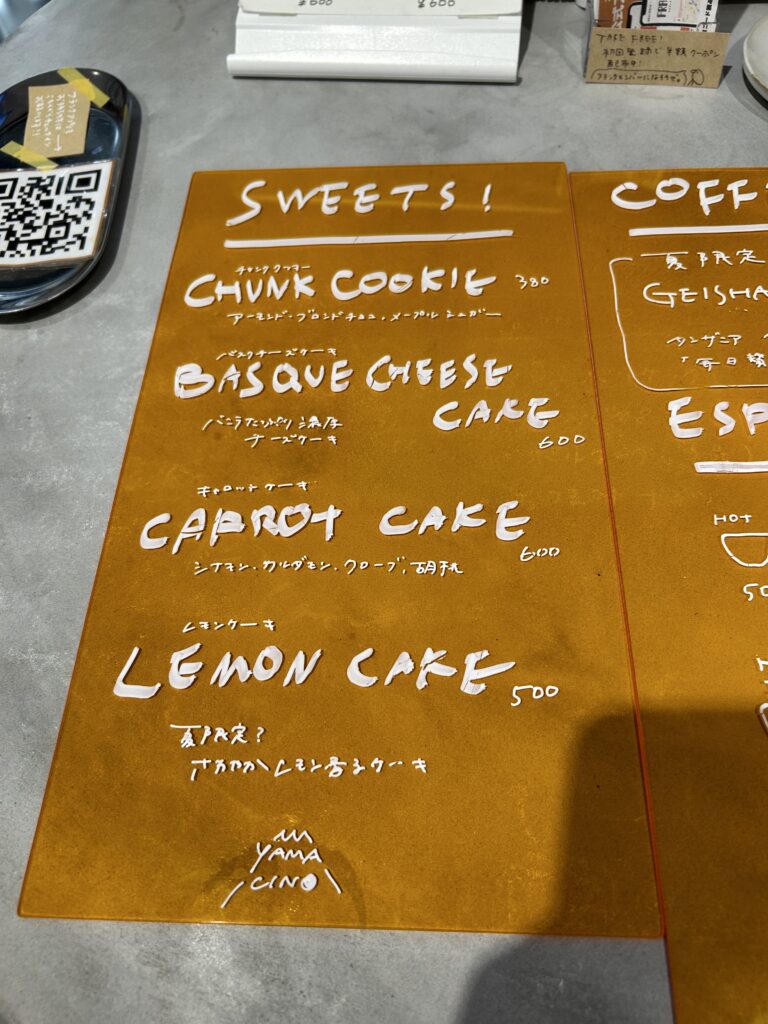 ¥600
¥600
TAKE FREE!
初回登録で半額クーポン
配布中!
SWEETS!
チャンククッキー
CHUNK COOKIE 380
アーモンド・ブロンドチョコ・メープルシュガー
バスクチーズケーキ
BASQUE CHEESE
CAKE
600
バニラたっぷり濃厚
チーズケーキ
キャロットケーキ
CARROT CAKE
600
シナモン・カルダモン・クローブ,胡桃
レモンケーキ
LEMON CAKE
500
夏限定?
さわやかレモン香るケーキ
YAMA
CINO
COFF
夏限定
GEISHA
タンザニア
毎日
ESP
HOT
50